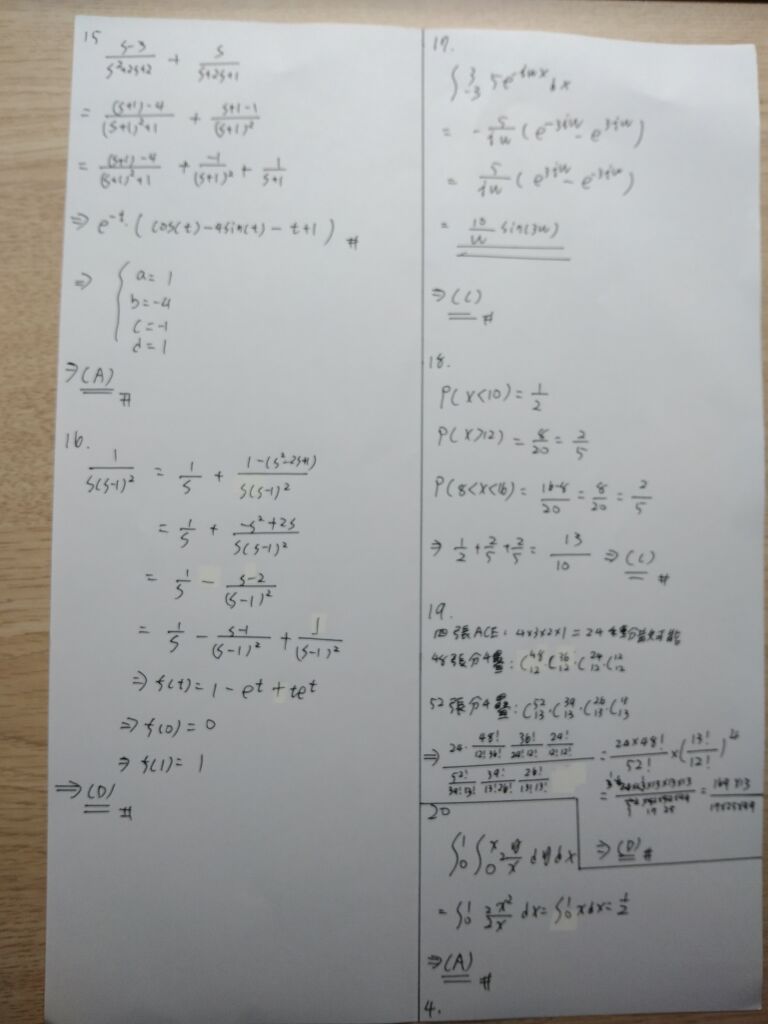 15
(s-3)/(s²+2s+2) + s/(s²+2s+1)
= ((s+1)-4)/((s+1)²+1) + (s+1-1)/(s+1)²
= ((s+1)-4)/((s+1)²+1) + (-1)/(s+1)² + 1/(s+1)
⇒ e^-t · (cos(t)-4sin(t)-t+1) #
⇒ { a=1
b=-4
c=-1
d=1
⇒ (A) #
16.
1/(s(s-1)²) = 1/s + (1-(s²-2s+1))/(s(s-1)²)
= 1/s + (-s²+2s)/(s(s-1)²)
= 1/s - (s-2)/(s-1)²
= 1/s - (s-1)/(s-1)² + 1/(s-1)²
⇒ f(t) = 1 - e^t + te^t
⇒ f(0) = 0
⇒ f(1) = 1
⇒ (D) #
17.
∫_-3^3 5e^-iwx dx
= -5/(iw) (e^-3iw - e^3iw)
= 5/(iw) (e^3iw - e^-3iw)
= 10/w sin(3w)
⇒ (C) #
18.
P(x<10) = 1/2
P(x>12) = 8/20 = 2/5
P(8<x<16) = (16-8)/20 = 8/20 = 2/5
⇒ 1/2 + 2/5 + 2/5 = 13/10 ⇒ (C) #
19.
四張ACE: 4×3×2×1 = 24 種分散可能
48張分4疊: C^48_12 · C^36_12 · C^24_12 · C^12_12
52張分4疊: C^52_13 · C^39_13 · C^26_13 · C^13_13
⇒ (24 · 48!/(12!36!) · 36!/(24!12!) · 24!/(12!12!)) / (52!/(39!13!) · 39!/(13!26!) · 26!/(13!13!)) = (24×48!)/52! × (13!/12!)^4
= 169×13
⇒ (D) #
20
∫_0^1 ∫_0^x 2y/x dydx
= ∫_0^1 2x²/2x dx = ∫_0^1 xdx = 1/2
⇒ (A) #
4.